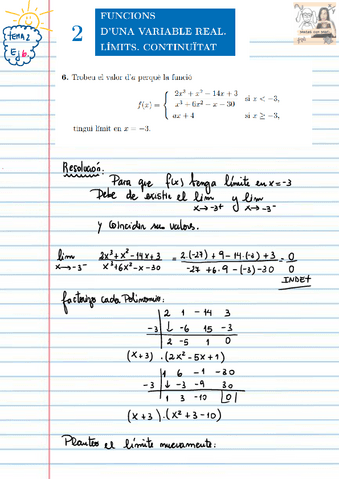 tema 2
Ej 6.
2
FUNCIONS
D'UNA VARIABLE REAL.
LÍMITS. CONTINUÏTAT
6. Trobeu el valor d'a perquè la funció
f(x) = { 2x³ + x² − 14x + 3 / x³ + 6x² − x − 30 si x < −3,
ax + 4 si x ≥ −3,
tingui límit en x = −3.
Resolució:
Para que f(x) tenga límite en x = -3
Debe de existir el lim x→-3⁺ y lim x→-3⁻
y coincidir sus valors.
lim x→-3⁻ 2x³+x²-14x+3 / x³+6x²-x-30 = 2.(-27)+9-14.(-3)+3 / -27+6.9-(-3)-30 = 0/0
INDET
factorizo cada Polinomio:
2 1 -14 3
-3 ↓ -6 15 -3
2 -5 1 0
(x+3).(2x²-5x+1)
1 6 -1 -30
-3 ↓ -3 -9 30
1 3 -10 0
(x+3).(x²+3-10)
Planteo el límite nuevamente: